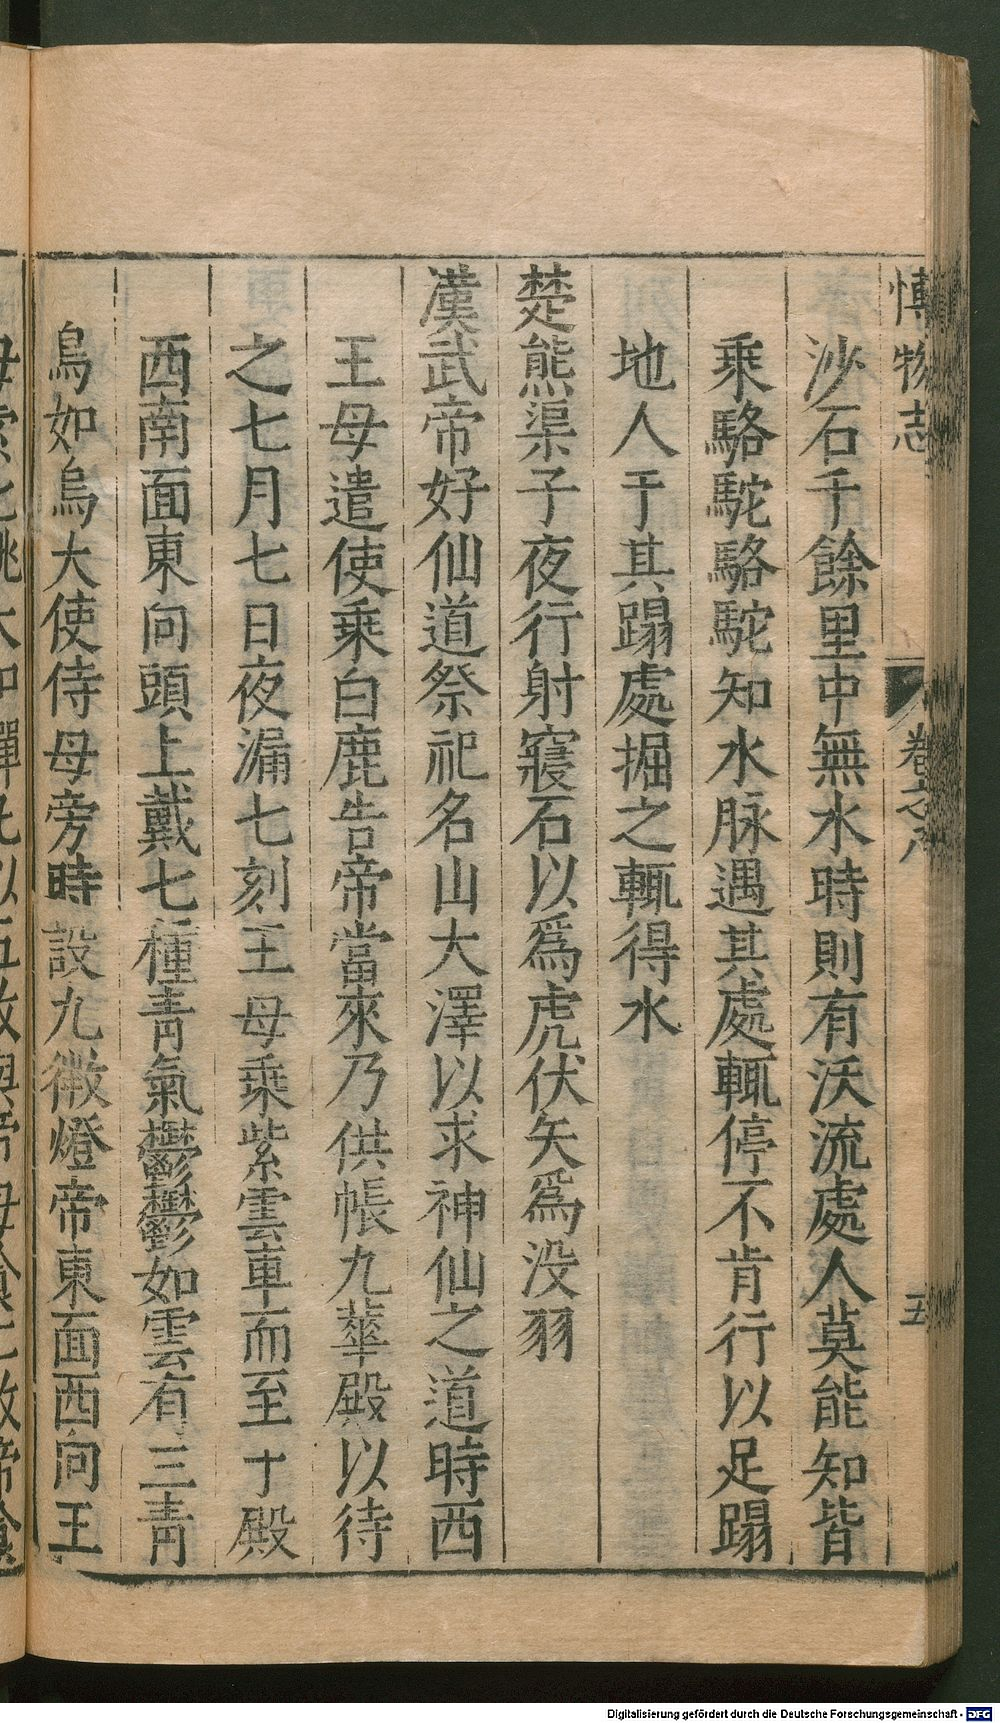 博物志 卷之八 五
沙石千餘里中無水時則有沃流處人莫能知皆
乘駱駝駱駝知水脉遇其處輒停不肯行以足蹋
地人于其蹋處掘之輒得水
楚熊渠子夜行射寢石以爲虎伏矢爲没羽
漢武帝好仙道祭祀名山大澤以求神仙之道時西
王母遣使乘白鹿告帝當來乃供帳九華殿以待
之七月七日夜漏七刻王母乘紫雲車而至于殿
西南面東向頭上戴七種青氣鬱鬱如雲有三青
鳥如烏大使侍母旁時設九微燈帝東面西向王
Digitalisierung gefördert durch die Deutsche Forschungsgemeinschaft - DFG